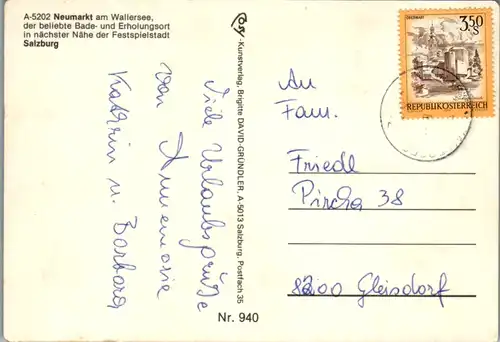 A-5202 Neumarkt am Wallersee,
der beliebte Bade- und Erholungsort
in nächster Nähe der Festspielstadt
Salzburg
Viele Urlaubsgrüße
von Annemarie
Kathrin u. Barbara
-Kunstverlag, Brigitte DAVID-GRÜNDLER, A-5013 Salzburg, Postfach 35
Nr. 940
3.50
S
REPUBLIK ÖSTERREICH
An
Fam.
Friedl
Pircha 38
8200 Gleisdorf